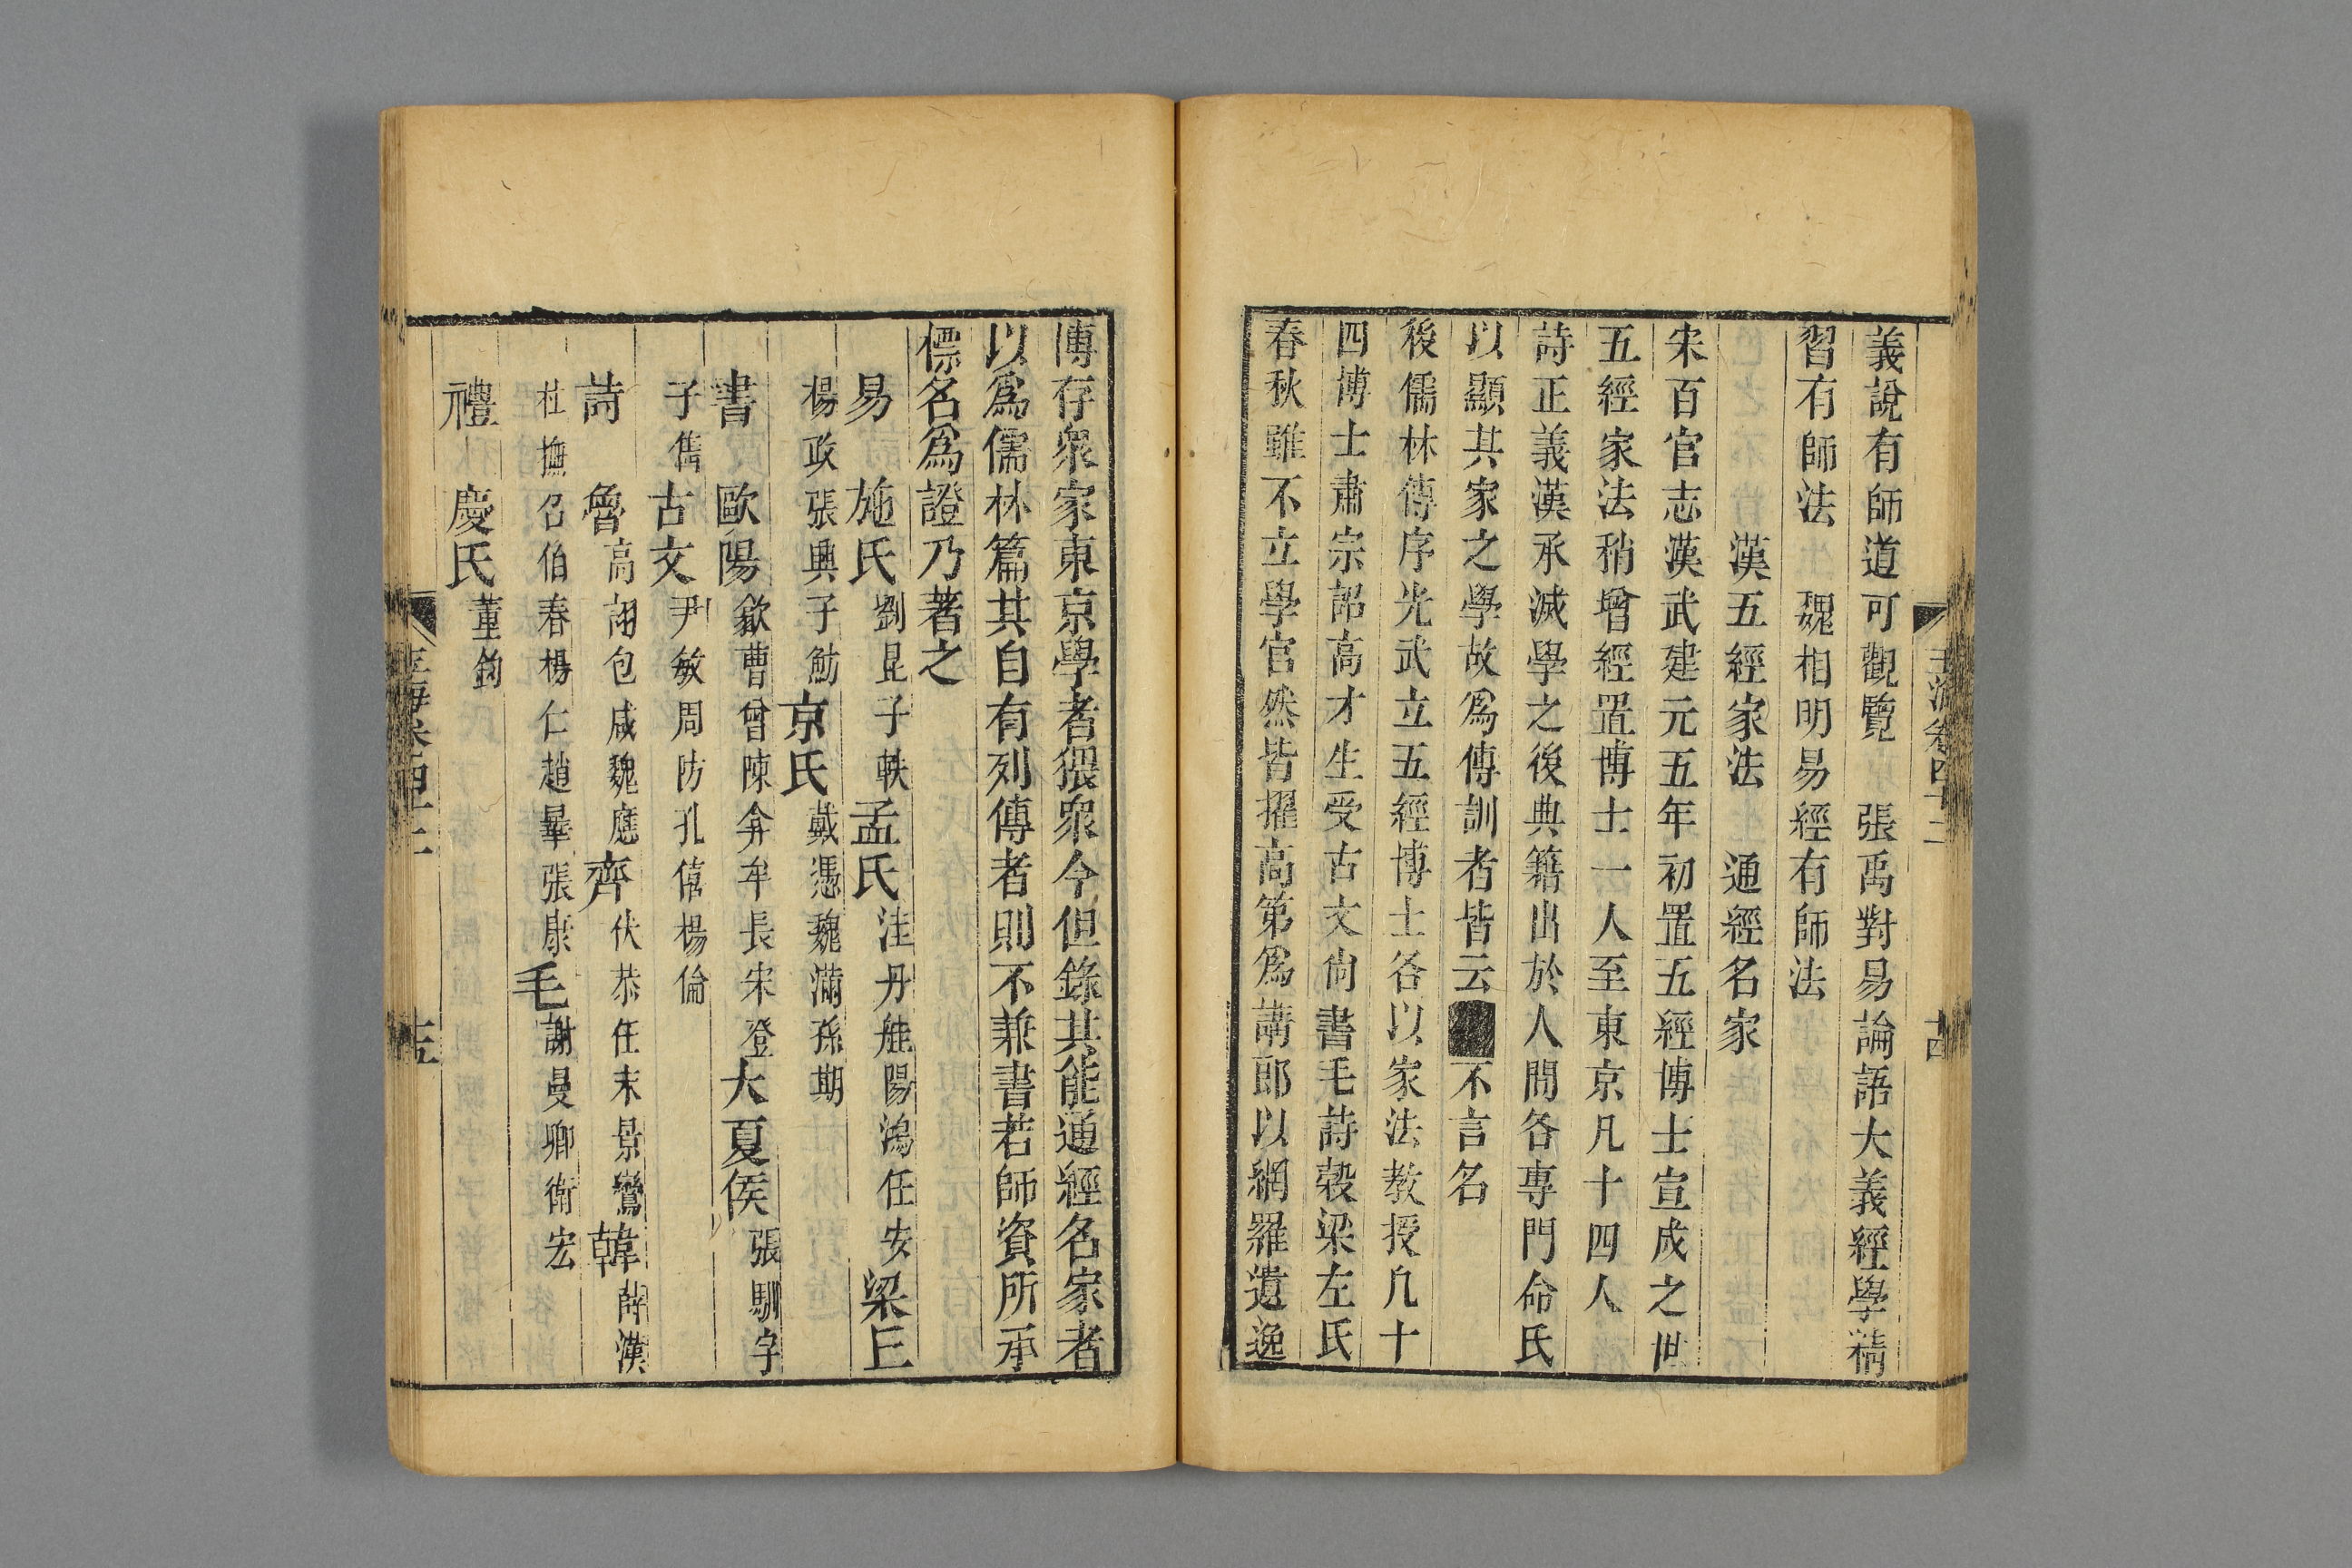 玉海卷四十二
十四
義說有師道可觀覽　張禹對易論語大義經學精
習有師法　魏相明易經有師法
漢五經家法　通經名家
宋百官志漢武建元五年初置五經博士宣成之世
五經家法稍增經置博士一人至東京凡十四人
詩正義漢承滅學之後典籍出於人間各專門命氏
以顯其家之學故爲傳訓者皆云不言名
後儒林傳序光武立五經博士各以家法教授凡十
四博士肅宗詔高才生受古文尚書毛詩穀梁左氏
春秋雖不立學官然皆擢高第爲講郎以網羅遺逸
博存衆家東京學者猥衆今但錄其能通經名家者
以爲儒林篇其自有列傳者則不兼書若師資所承
標名爲證乃著之
易　施氏劉昆子軼孟氏洼丹觟陽鴻任安梁丘
楊政張興子魴京氏戴憑魏滿孫期
書　歐陽歙曹曾陳弇牟長宋登大夏侯張馴字
子雋古文尹敏周防孔僖楊倫
詩　魯高詡包咸魏應齊伏恭任末景鸞韓薛漢
杜撫召伯春楊仁趙曄張康毛謝曼卿衛宏
禮　慶氏董鈞
玉海卷四十二
十五